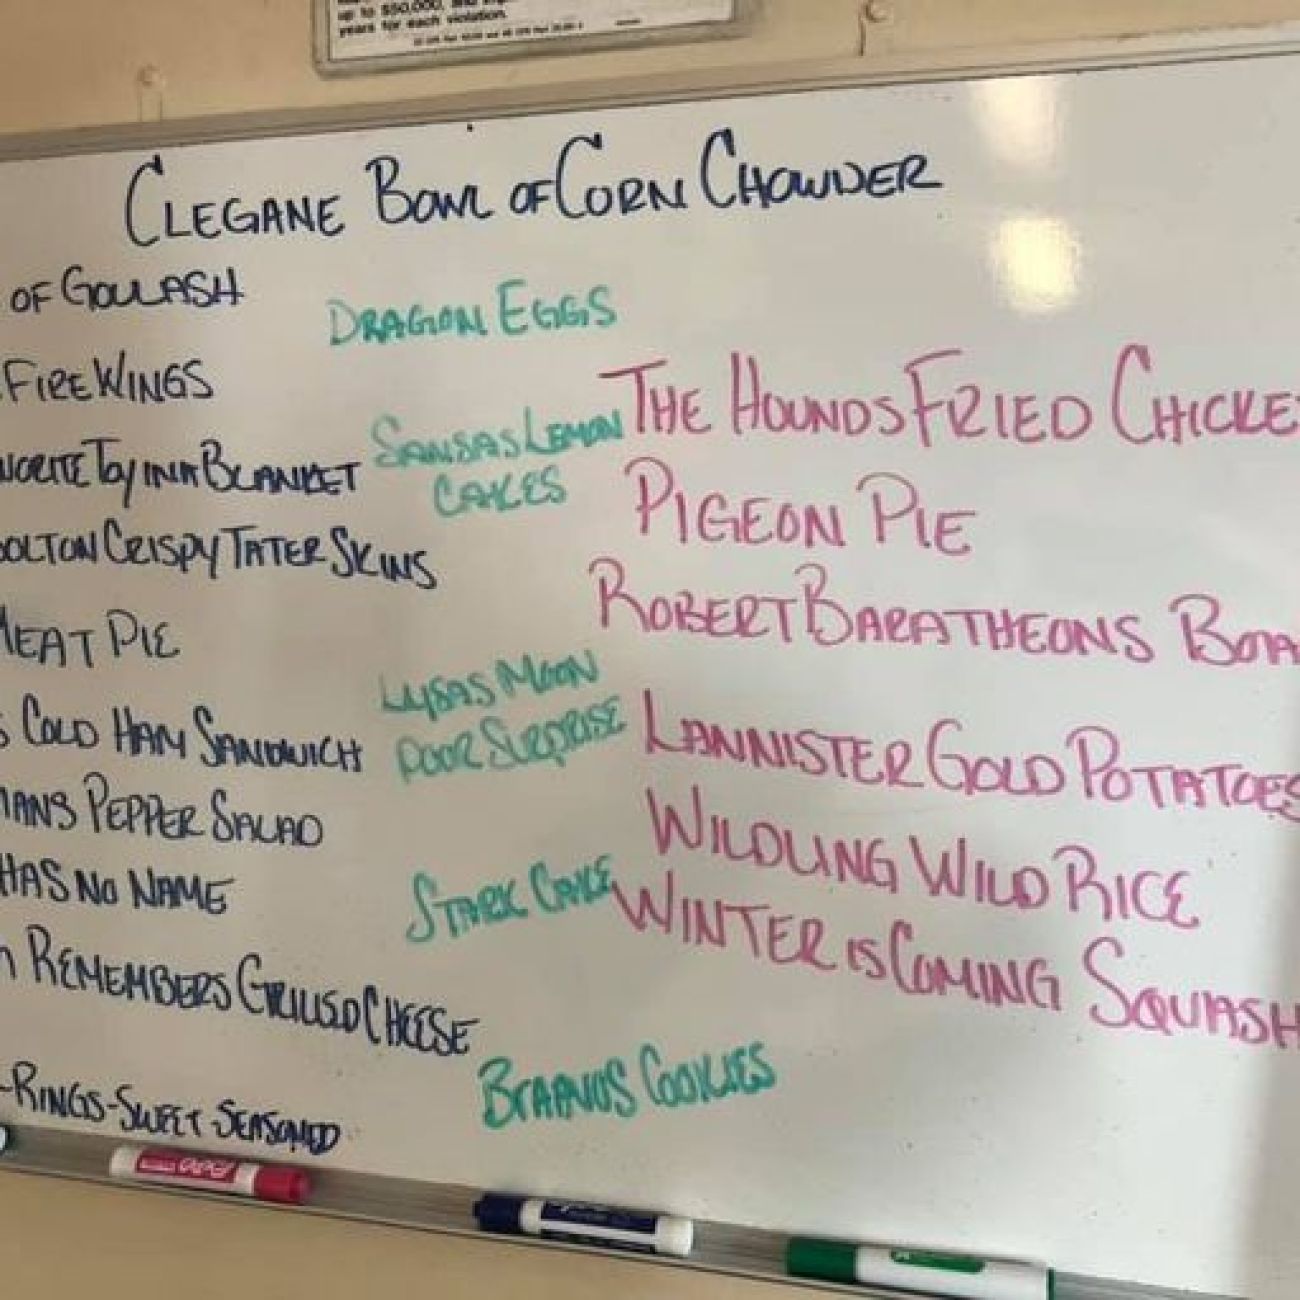 up to $50,000, and
years for each violation.
CLEGANE BOWL OF CORN CHOWDER
OF GOULASH
FIRE WINGS
TOY IN A BLANKET
OLTON CRISPY TATER SKINS
MEAT PIE
S COLD HAM SANDWICH
MANS PEPPER SALAD
HAS NO NAME
REMEMBERS GRILLED CHEESE
-RINGS-SWEET-SEASONED
DRAGON EGGS
SANSAS LEMON
CAKES
LYSAS MOON
DOOR SURPRISE
STARK CAKE
COOKIES
THE HOUNDS FRIED CHICKE
PIGEON PIE
ROBERT BARATHEONS BOA
LANNISTER GOLD POTATOES
WILDLING WILD RICE
WINTER IS COMING SQUASH
EXPO